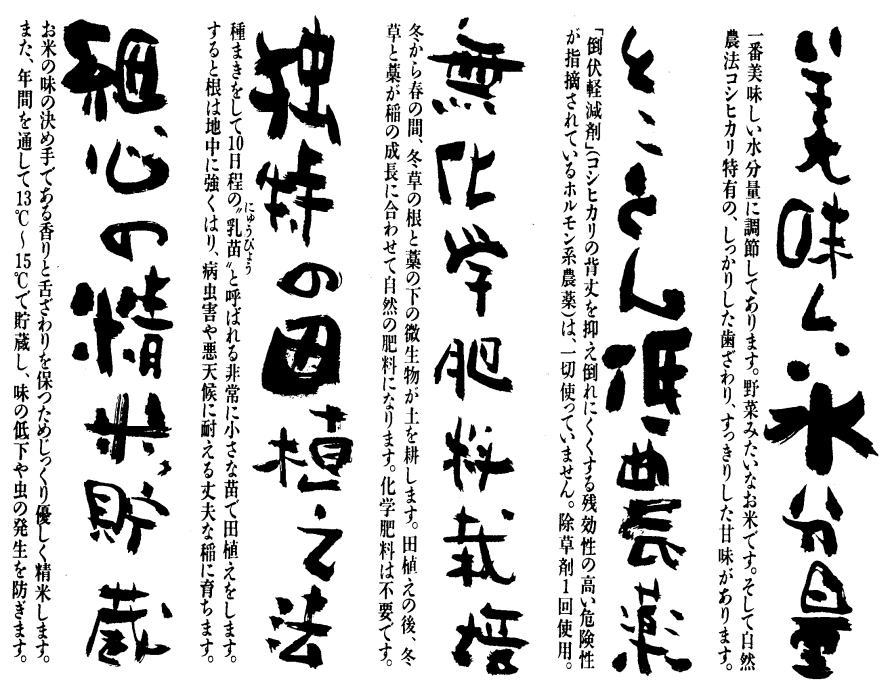 いい美味しい水分量
一番美味しい水分量に調節してあります。野菜みたいなお米です。そして自然
農法コシヒカリ特有の、しっかりした歯ざわり、すっきりした甘味があります。
とことん低農薬
「倒伏軽減剤」（コシヒカリの背丈を抑え倒れにくくする残効性の高い危険性
が指摘されているホルモン系農薬）は、一切使っていません。除草剤1回使用。
無化学肥料栽培
冬から春の間、冬草の根と藁の下の微生物が土を耕します。田植えの後、冬
草と藁が稲の成長に合わせて自然の肥料になります。化学肥料は不要です。
独特の田植え法
種まきをして10日程の〝乳苗〟と呼ばれる非常に小さな苗で田植えをします。
にゅうびょう
すると根は地中に強くはり、病虫害や悪天候に耐える丈夫な稲に育ちます。
細心の精米、貯蔵
お米の味の決め手である香りと舌ざわりを保つためじっくり優しく精米します。
また、年間を通して13℃〜15℃で貯蔵し、味の低下や虫の発生を防ぎます。